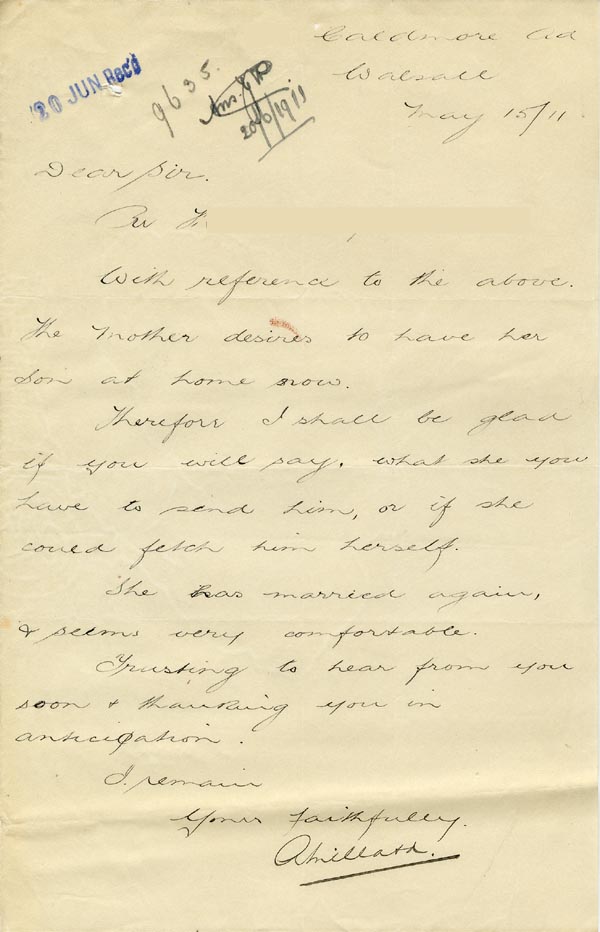 Caldmore Rd
Walsall
May 15/11
20 JUN Rec'd
9635.
Ans.
20/6/1911
Dear Sir.
Re H
With reference to the above.
the Mother desires to have her
son at home now.
Therefore I shall be glad
if you will say, what she you
have to send him, or if she
could fetch him herself.
She has married again,
& seems very comfortable.
Trusting to hear from you
soon & thanking you in
anticipation.
I remain
Yours faithfully.